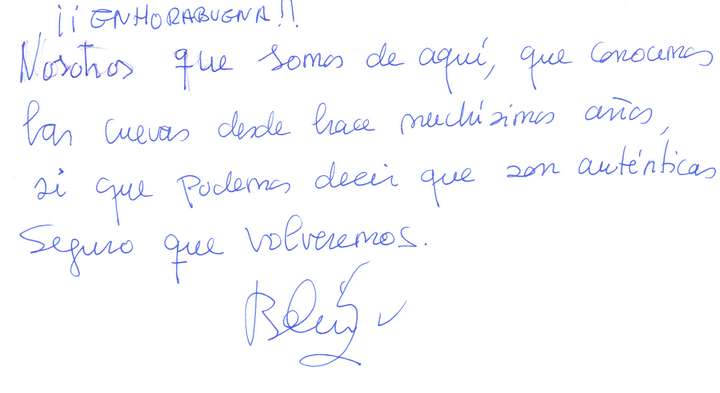 ¡¡ENHORABUENA!!
Nosotros que somos de aquí, que conocemos
las cuevas desde hace muchísimos años,
si que podemos decir que son auténticas
Seguro que volveremos.